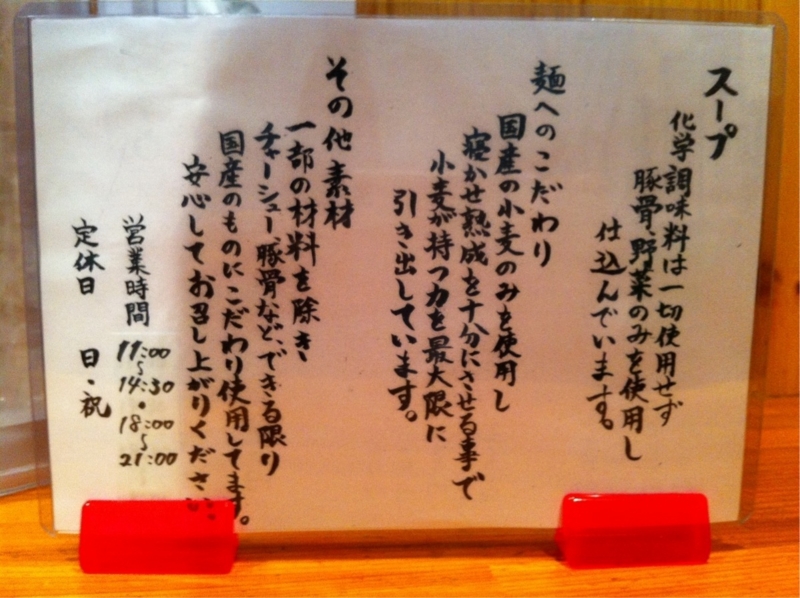 スープ
化学調味料は一切使用せず
豚骨、野菜のみを使用し
仕込んでいます。
麺へのこだわり
国産の小麦のみを使用し
寝かせ熟成を十分にさせる事で
小麦が持つ力を最大限に
引き出しています。
その他素材
一部の材料を除き
チャーシュー、豚骨など、できる限り
国産のものにこだわり使用してます。
安心してお召し上がりください。
営業時間 11:00〜14:30・18:00〜21:00
定休日 日・祝